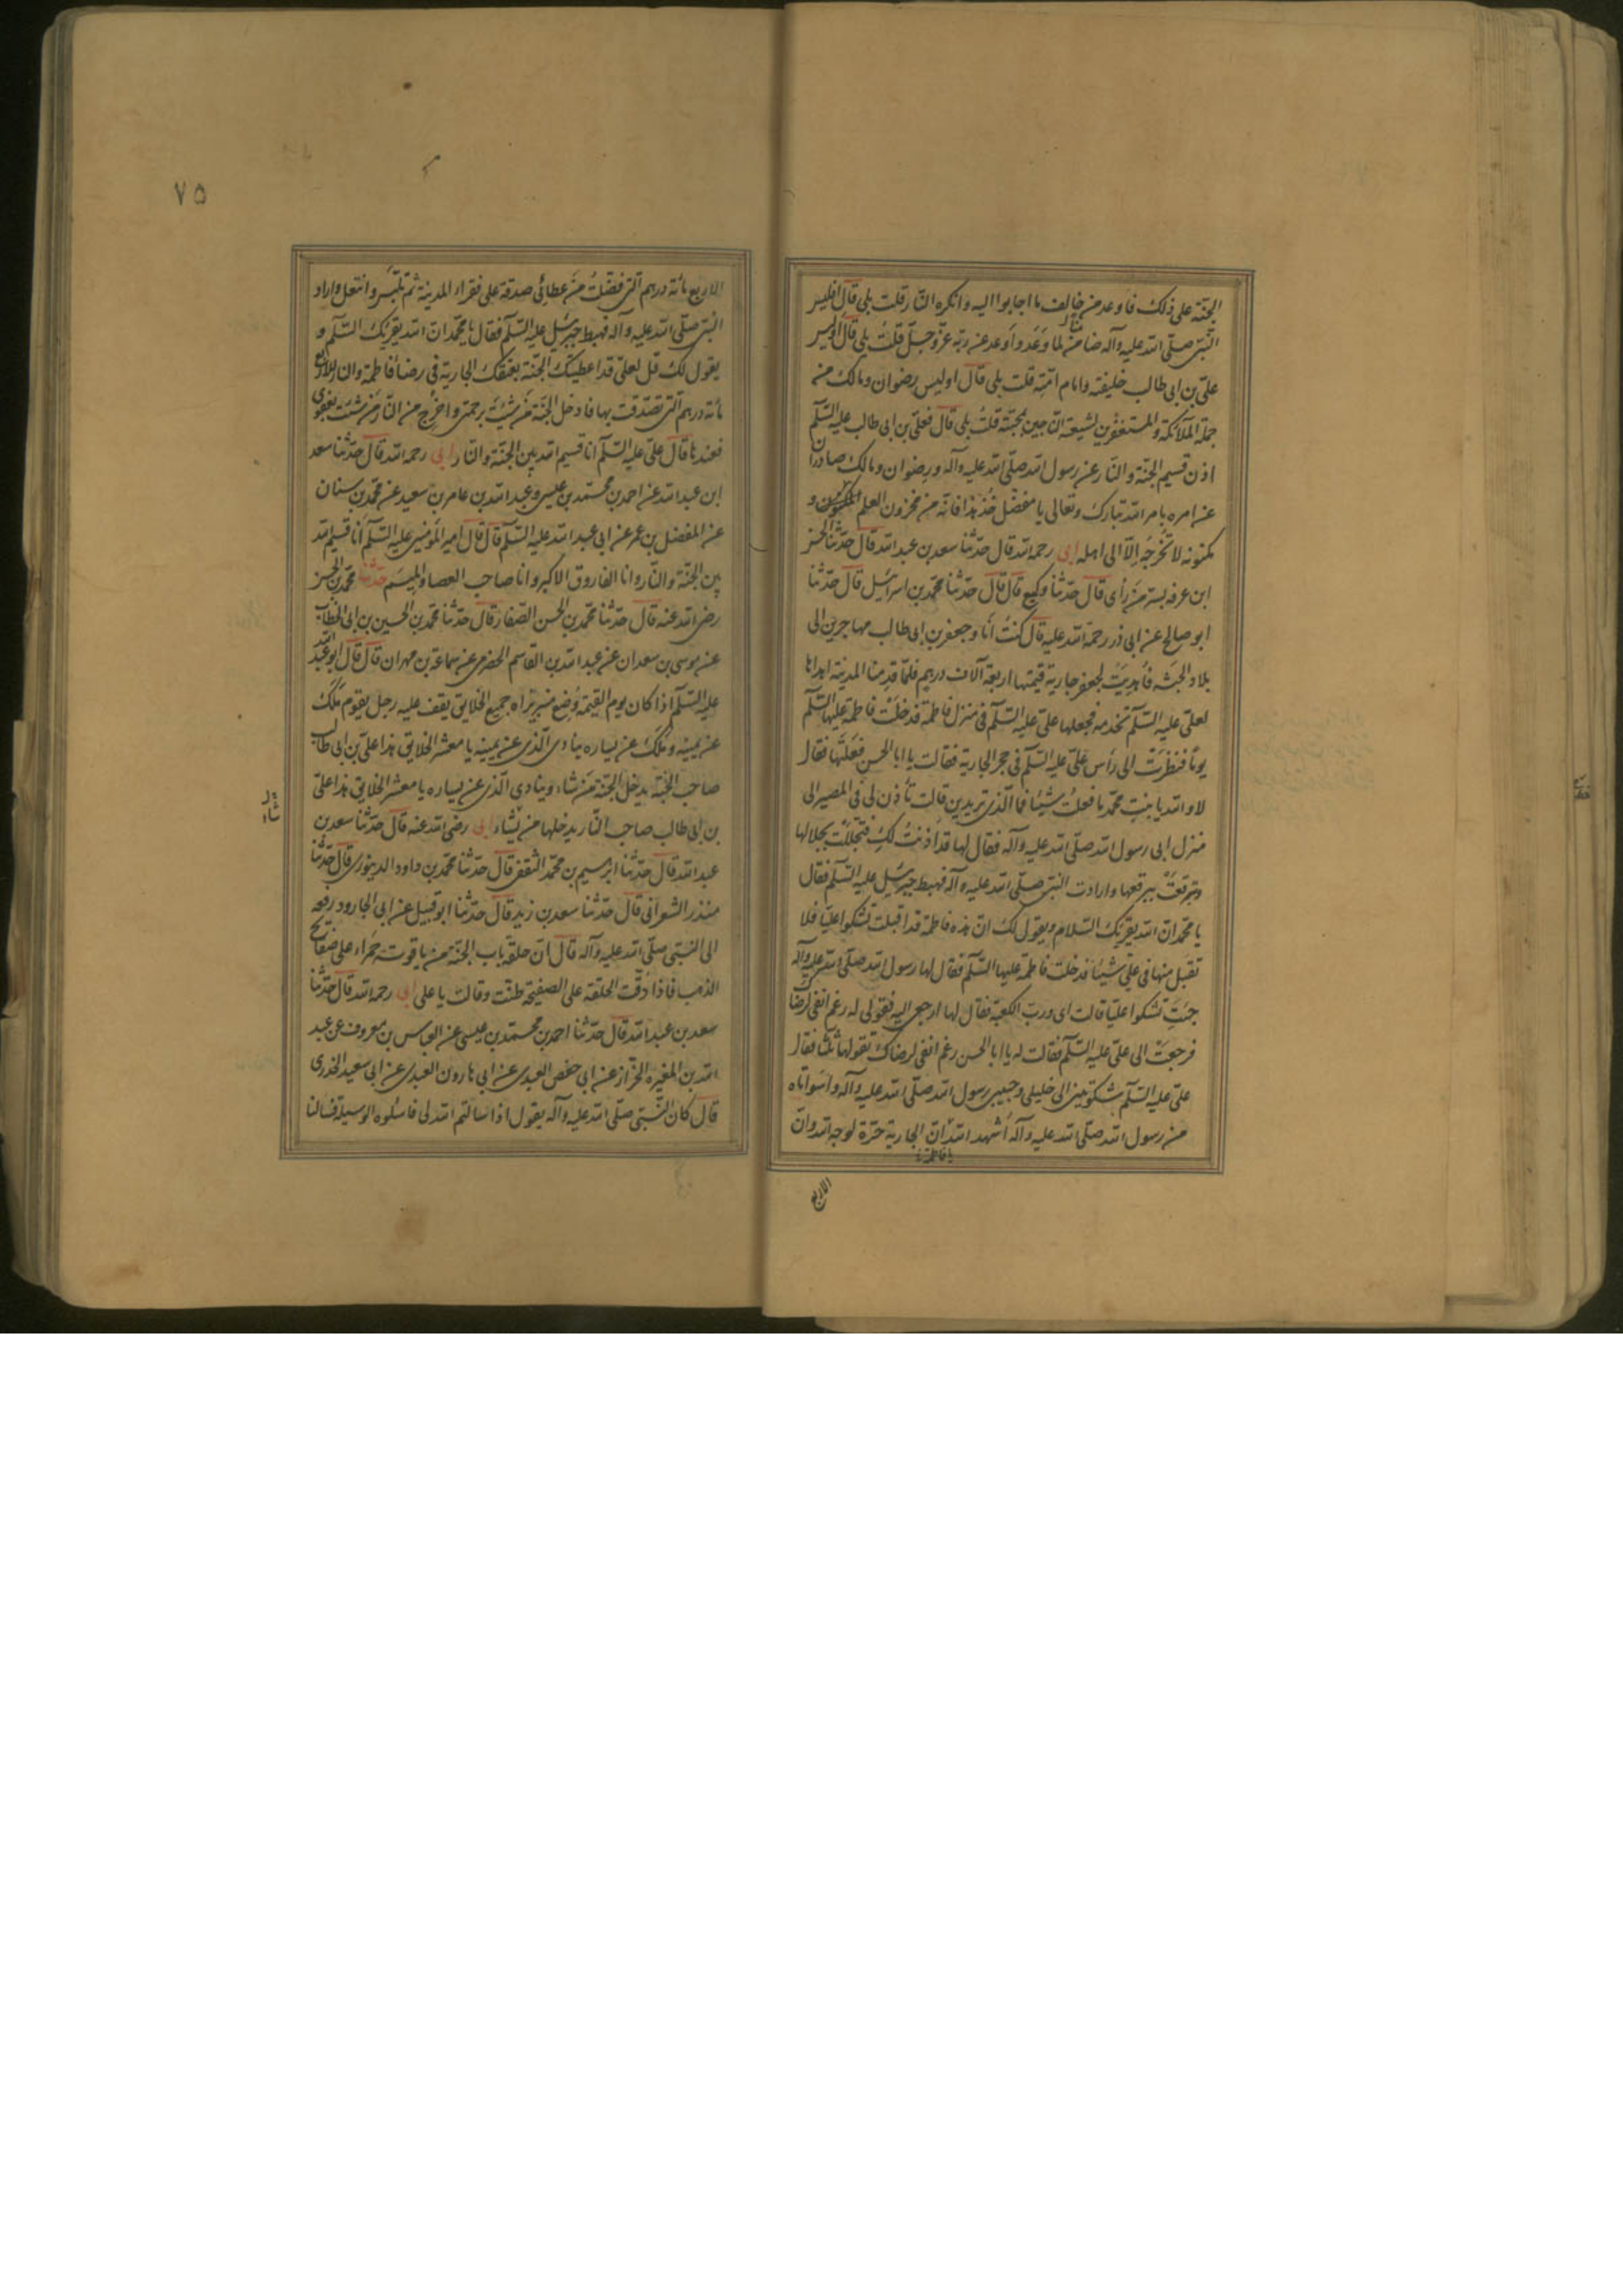 الجنّة على ذلك فاوعد من خالف ما اجابوا اليه وانكره النّار قلت بلى قال افليس
النّبىّ صلّى الله عليه وآله ضامن لما وَعَد واَوعد عن ربّه عزّ وجلّ قلتُ بلى قال اوليس
علىّ بن ابى طالب خليفته وامام امّته قلت بلى قال اوليس رضوان ومالك من
جملة الملائكة والمستغفرين لشيعته النّاجين بمحبّته قلتُ بلى قال فعلىّ بن ابى طالب عليه السّلم
اذن قسيم الجنّة والنّار عن رسول الله صلّى الله عليه وآله ورضوان ومالك صادران
عن امره بامر الله تبارك وتعالى يا مفضّل خُذ هذا فانّه من مخزون العلم المكنون و
مكنونه لا تُخرجه الّا الى اهله ابى رحمه الله قال حدّثنا سعد بن عبد الله قال حدّثنا الحسن
ابن عرفه بسرّ مَن رأى قال حدّثنا وكيع قال قال حدّثنا محمّد بن اسرائيل قال حدّثنا
ابو صالح عن ابى ذر رحمة الله عليه قال كنتُ اَنا وجعفر بن ابى طالب مهاجرين الى
بلاد الحبشه فاُهديَت لجعفر جارية قيمتها اربعة آلاف درهم فلمّا قدمنا المدينة اهداها
لعلى عليه السّلم تخدمه فجعلها علىّ عليه السّلم فى منزل فاطمة فدخلَت فاطمة عليها السّلم
يومًا فنظرَت الى رأس علىّ عليه السّلم فى حجر الجارية فقالت يا ابا الحسن فعَلتَها فقال
لا والله يا بنت محمّد ما فعلتُ شيئًا فما الّذى تريدين قالت تأذن لى فى المصير الى
منزل ابى رسول الله صلّى الله عليه وآله فقال لها قد اذنتُ لكِ فتجلّلَت بجلالها
وتبرقعَت ببرقعها وارادت النبىّ صلّى الله عليه وآله فهبط جبرئيل عليه السّلم فقال
يا محمّد انّ الله يقرئك السّلام ويقول لك انّ هذه فاطمة قد اقبلت تشكوا عليًّا فلا
تقبَل منها فى علىّ شيئًا فدخلت فاطمة عليها السّلم فقال لها رسول الله صلّى الله عليه وآله
جئتِ تشكوا عليّا قالت اى وربّ الكعبة فقال لها ارجعى اليه فقولى له رغم انفى لرضاك
فرجعَت الى علىّ عليه السّلم فقالت له يا ابا الحسن رغم انفى لرضاك تقولها ثلثًا فقال
علىّ عليه السّلم شكوتينى الى خليلى وحبيبى رسول الله صلّى الله عليه وآله واسَوأتاه
من رسول الله صلّى الله عليه وآله اُشهد الله انّ الجارية حرّة لوجه الله وانّ
يا فاطمة
الاربع
٧٥
الاربع مائة درهم الّتى فضلت من عطائى صدقة على فقراء المدينة ثم تلبّس وانتعل واراد
النبىّ صلّى الله عليه وآله فهبط جبرئيل عليه السّلم فقال يا محمّد انّ الله يقرئك السّلم و
يقول لك قل لعلىّ قد اعطيتك الجنّة بعتقك الجارية فى رضا فاطمة والنار بالاربع
مائة درهم الّتى تصدّقت بها فادخل الجنّة مَن شئتَ برحمتى واخرج من النّار مَن شئت بعفوى
فعندها قال علىّ عليه السّلم انا قسيم الله بين الجنّة والنّار ابى رحمه الله قال حدّثنا سعد
ابن عبد الله عن احمد بن محمّد بن عيسى وعبد الله بن عامر بن سعيد عن محمّد بن سنان
عن المفضل بن عمر عن ابى عبد الله عليه السّلم قال قال امير المؤمنين عليه السّلم أنا قسيم الله
بين الجنّة والنّار وانا الفاروق الاكبر وانا صاحب العصا والميسَم حدّثنا محمّد بن الحسن
رضى الله عنه قال حدّثنا محمّد بن الحسن الصّفار قال حدّثنا محمّد بن الحسين بن ابى الخطاب
عن موسى بن سعدان عن عبد الله بن القاسم الحضرمى عن سماعة بن مهران قال قال ابو عبد الله
عليه السّلم اذا كان يوم القيمة وُضع منبر يراه جميع الخلايق يقف عليه رجل يقوم ملَك
عن يمينه وملَك عن يساره ينادى الّذى عن يمينه يا معشر الخلايق هذا علىّ بن ابى طالب
صاحب الجنّة يدخل الجنّة من شاء وينادى الّذى عن يساره يا معشر الخلايق هذا علىّ
بن ابى طالب صاحب النّار يدخلها من يشاء ابى رضى الله عنه قال حدّثنا سعد بن
عبد الله قال حدّثنا ابرهيم بن محمّد الثقفى قال حدّثنا محمّد بن داود الدينورى قال حدّثنا
منذر الشعرانى قال حدّثنا سعد بن زيد قال حدّثنا ابو قبيل عن ابى الجارود رفعه
الى النّبىّ صلّى الله عليه وآله قال انّ حلقة باب الجنّة من ياقوتة حَمراء على صفائح
الذهب فاذا دُقّت الحلقة على الصفيحة طنّت وقالت يا على ابى رحمه الله قال حدّثنا
سعد بن عبد الله قال حدّثنا احمد بن محمّد بن عيسى عن العباس بن معروف عن عبد
الله بن المغيره الخزاز عن ابى حفص العبدى عن ابى هارون العبدى عن ابى سعيد الخدرى
قال كان النّبىّ صلّى الله عليه وآله يقول اذا سالتم الله لى فاسئلوه الوسيلة فسالنا